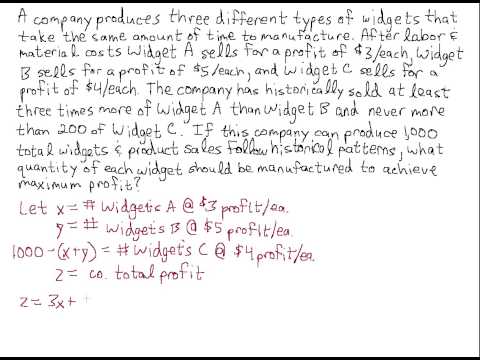 A company produces three different types of widgets that
take the same amount of time to manufacture. After labor &
material costs Widget A sells for a profit of $3/each, Widget
B sells for a profit of $5/each, and Widget C sells for a
profit of $4/each. The company has historically sold at least
three times more of Widget A than Widget B and never more
than 200 of Widget C. If this company can produce 1000
total widgets & product sales follow historical patterns, what
quantity of each widget should be manufactured to achieve
maximum profit?
Let x = # Widgets A @ $3 profit/ea.
y = # Widgets B @ $5 profit/ea.
1000-(x+y) = # Widgets C @ $4 profit/ea.
z = co. total profit
z = 3x +